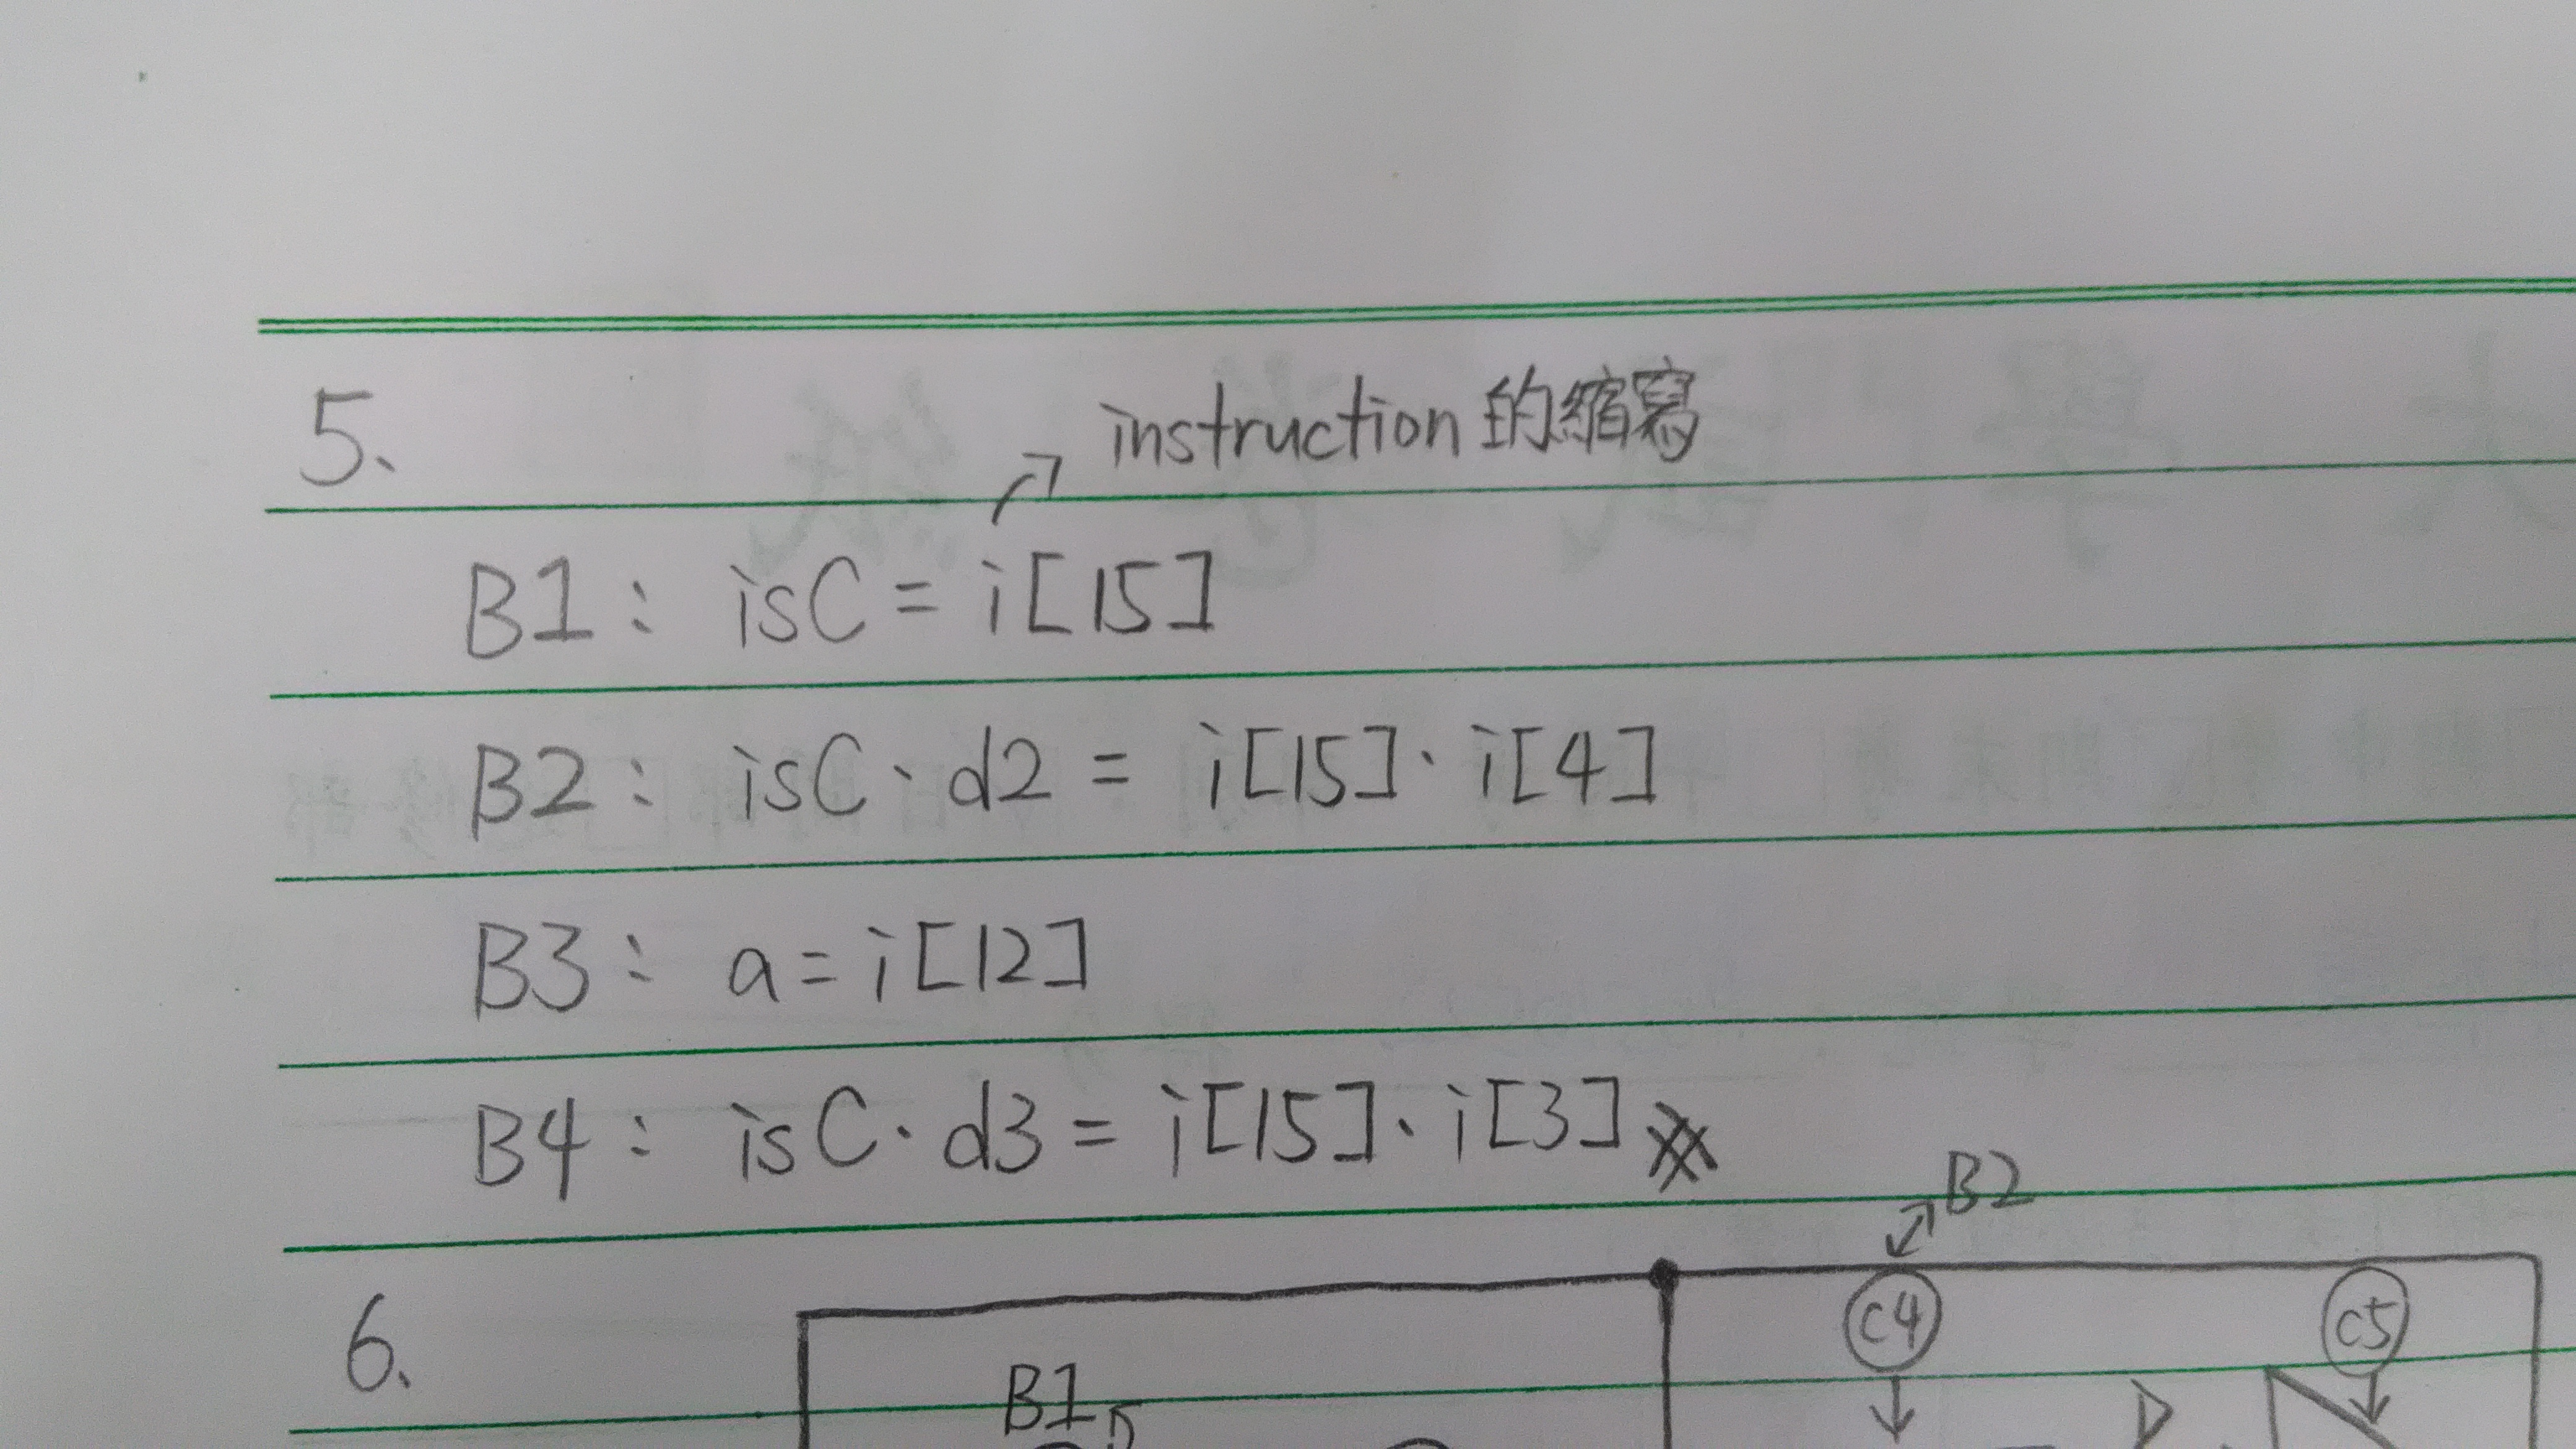 5、
instruction的縮寫
B1: isC = i[15]
B2: isC · d2 = i[15] · i[4]
B3: a = i[12]
B4: isC · d3 = i[15] · i[3]
B2
6、
c4
c5
B1
D